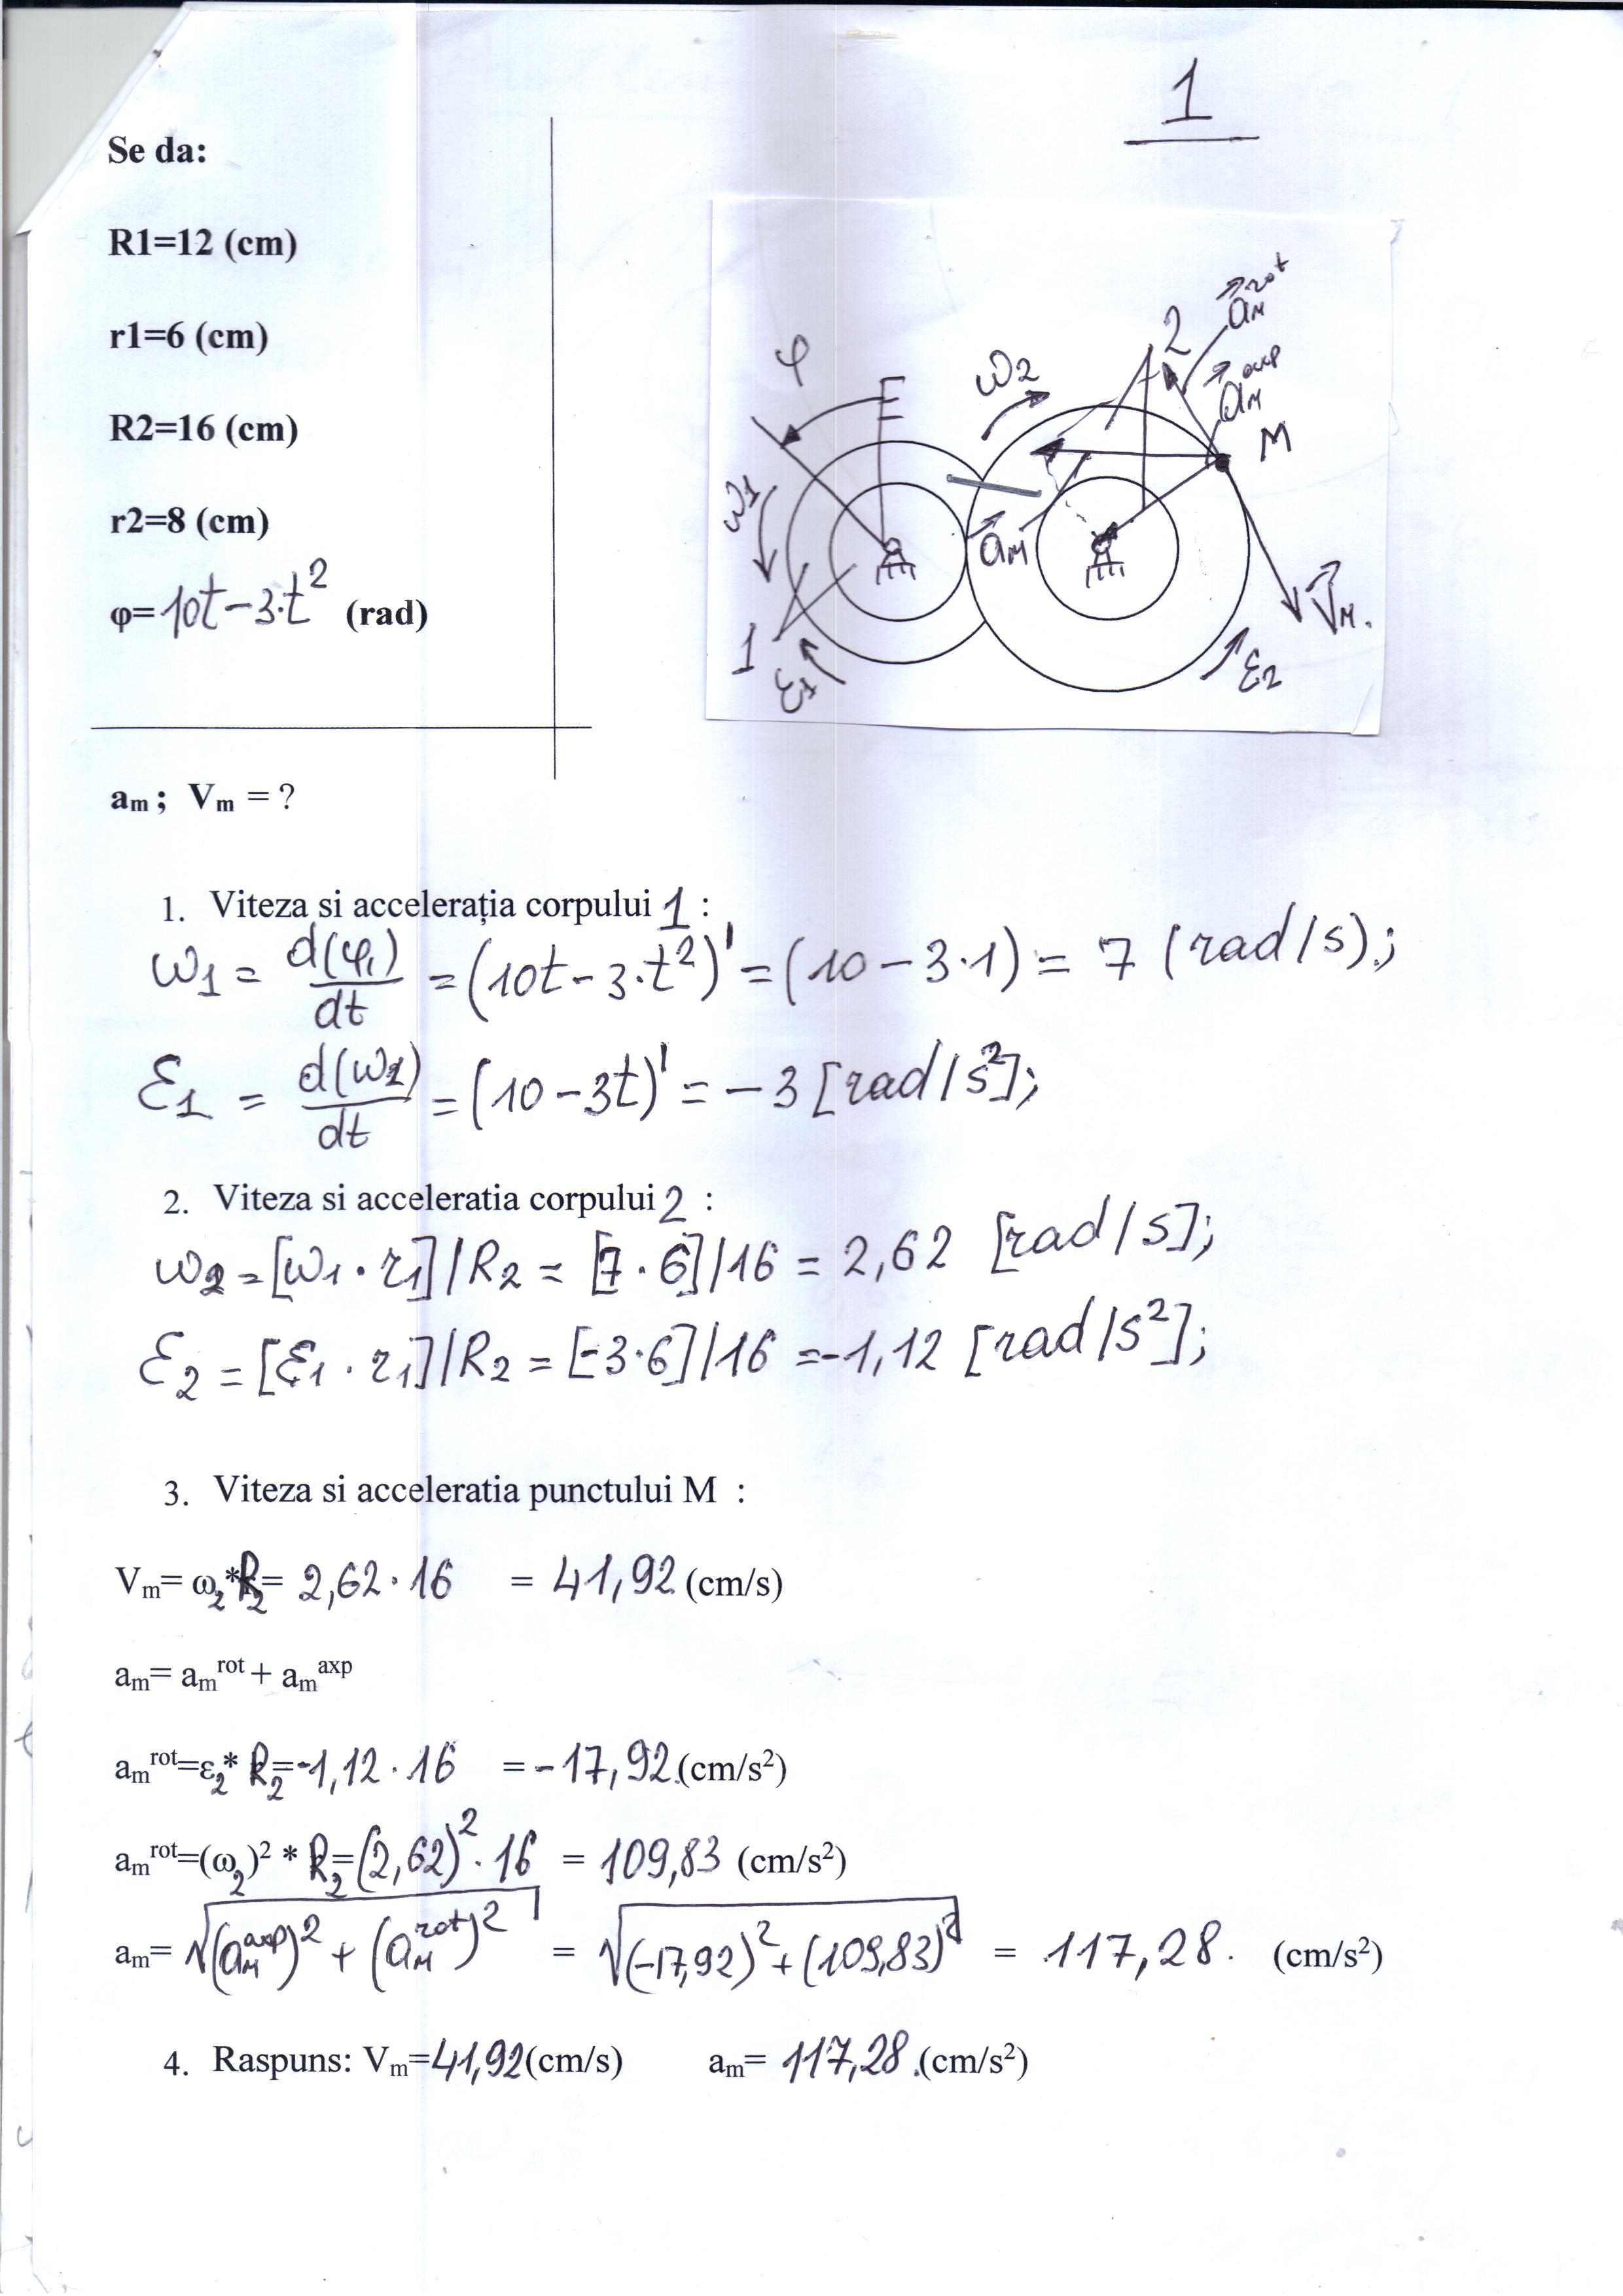 1
Se da:
R1=12 (cm)
r1=6 (cm)
R2=16 (cm)
r2=8 (cm)
φ=10t-3·t² (rad)
φ
ω1
1
ε1
ω2
2
a⃗ᴍʳᵒᵗ
a⃗ᴍᵃˣᵖ
M
a⃗ᴍ
V⃗ᴍ.
ε2
am ; Vm = ?
1. Viteza si accelerația corpului 1 :
ω1 = d(φ1)/dt = (10t-3·t²)' = (10-3·1) = 7 (rad/s).;
ε1 = d(ω1)/dt = (10-3t)' = -3 [rad/s²];
2. Viteza si acceleratia corpului 2 :
ω2 = [ω1·r1]/R2 = [7·6]/16 = 2,62 [rad/s];
ε2 = [ε1·r1]/R2 = [-3·6]/16 =-1,12 [rad/s²];
3. Viteza si acceleratia punctului M :
Vm= ω2*R2= 2,62·16 = 41,92 (cm/s)
am= amʳᵒᵗ + amᵃˣᵖ
amʳᵒᵗ=ε2* R2=-1,12·16 = -17,92.(cm/s²)
amʳᵒᵗ=(ω2)² * R2=(2,62)²·16 = 109,83 (cm/s²)
am= √(aᴍᵃˣᵖ)²+(aᴍʳᵒᵗ)² = √(-17,92)²+(109,83)² = 117,28. (cm/s²)
4. Raspuns: Vm=41,92(cm/s) am= 117,28.(cm/s²)